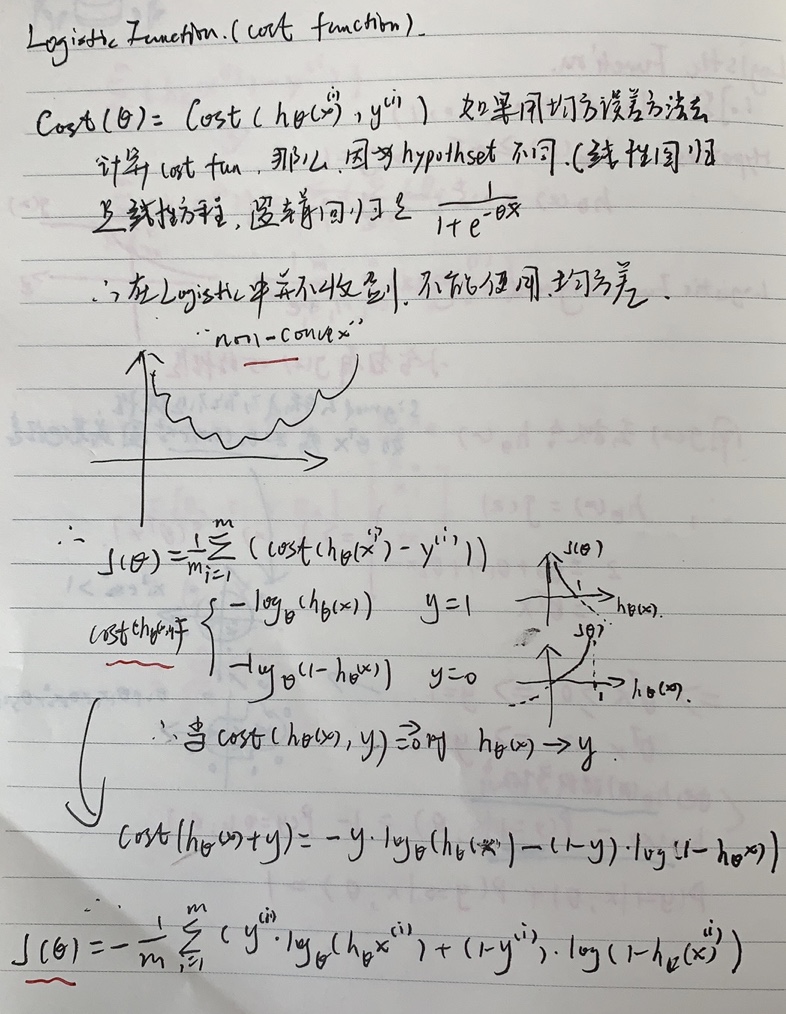 Logistic Function. (cost function).
Cost(θ) = Cost(hθ(x⁽ⁱ⁾), y⁽ⁱ⁾) 如果用均方误差方法去
计算 cost fun, 那么, 因为 hypothset 不同. (线性回归
是线性方程, 逻辑回归是 1/(1+e^(-θx))
∴ 在 Logistic 中并不收敛, 不能使用 均方差.
"non-convex"
∴ J(θ) = 1/m Σ_{i=1}^{m} (cost(hθ(x⁽ⁱ⁾) - y⁽ⁱ⁾))
J(θ)
1
hθ(x).
cost(hθ(x), y) = { -logθ(hθ(x)) y=1
-logθ(1-hθ(x)) y=0
J(θ)
1
hθ(x).
∴ 当 cost(hθ(x), y) ⇒ 0 时 hθ(x) → y.
Cost(hθ(x)+y) = -y·logθ(hθ(x)) - (1-y)·log(1-hθx))
∴ J(θ) = -1/m Σ_{i=1}^{m} (y⁽ⁱ⁾·logθ(hθx⁽ⁱ⁾) + (1-y⁽ⁱ⁾)·log(1-hθ(x)⁽ⁱ⁾)